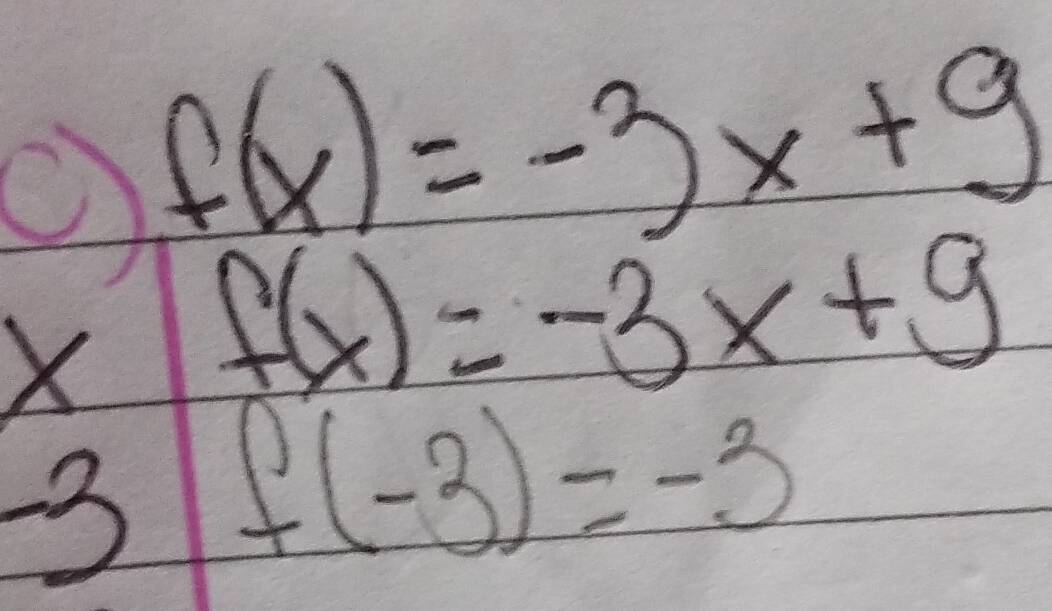 c) f(x) = -3x + 9
x f(x) = -3x + 9
-3 f(-3) = -3